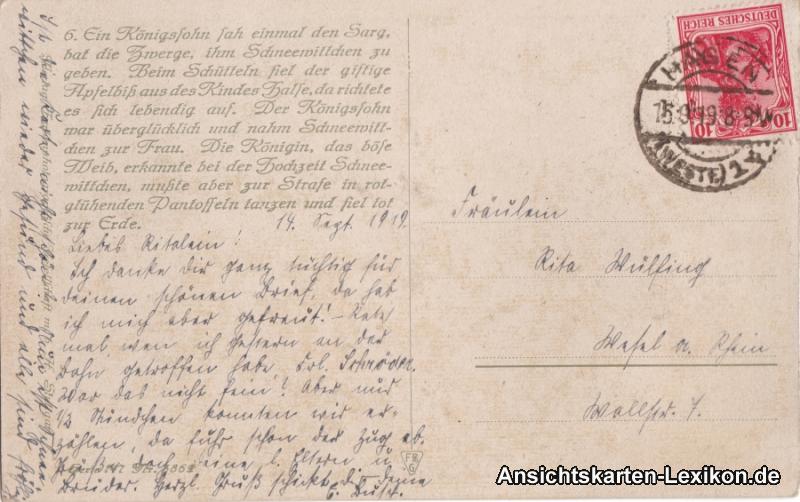 6. Ein Königssohn sah einmal den Sarg,
bat die Zwerge, ihm Schneewittchen zu
geben. Beim Schütteln fiel der giftige
Apfelbiß aus des Kindes Halse, da richtete
es sich lebendig auf. Der Königssohn
war überglücklich und nahm Schneewitt-
chen zur Frau. Die Königin, das böse
Weib, erkannte bei der Hochzeit Schnee-
wittchen, mußte aber zur Strafe in rot-
glühenden Pantoffeln tanzen und fiel tot
zur Erde.
14. Sept. 1919.
Liebes Ritalein!
Ich danke dir ganz tüchtig für
deinen schönen Brief, da hab
ich mich aber gefreut! – Rate
mal, wen ich gestern an der
Bahn getroffen habe Frl. Schröder.
War das nicht fein? Aber nur
1/2 Stündchen konnten wir er-
zählen, da fuhr schon der Zug ab.
Grüß doch eine l. Eltern u.
Brüder. Herzl. Gruß schickt dir deine
wittchen wieder gesund und alle sind
FR
G
DEUTSCHES REICH
10 10
HAGEN
15.9.19.8-9V
(WESTF.) 1
Fräulein
Rita Wülfing
Wesel a. Rhein
Wallstr. 7.
Ansichtskarten-Lexikon.de